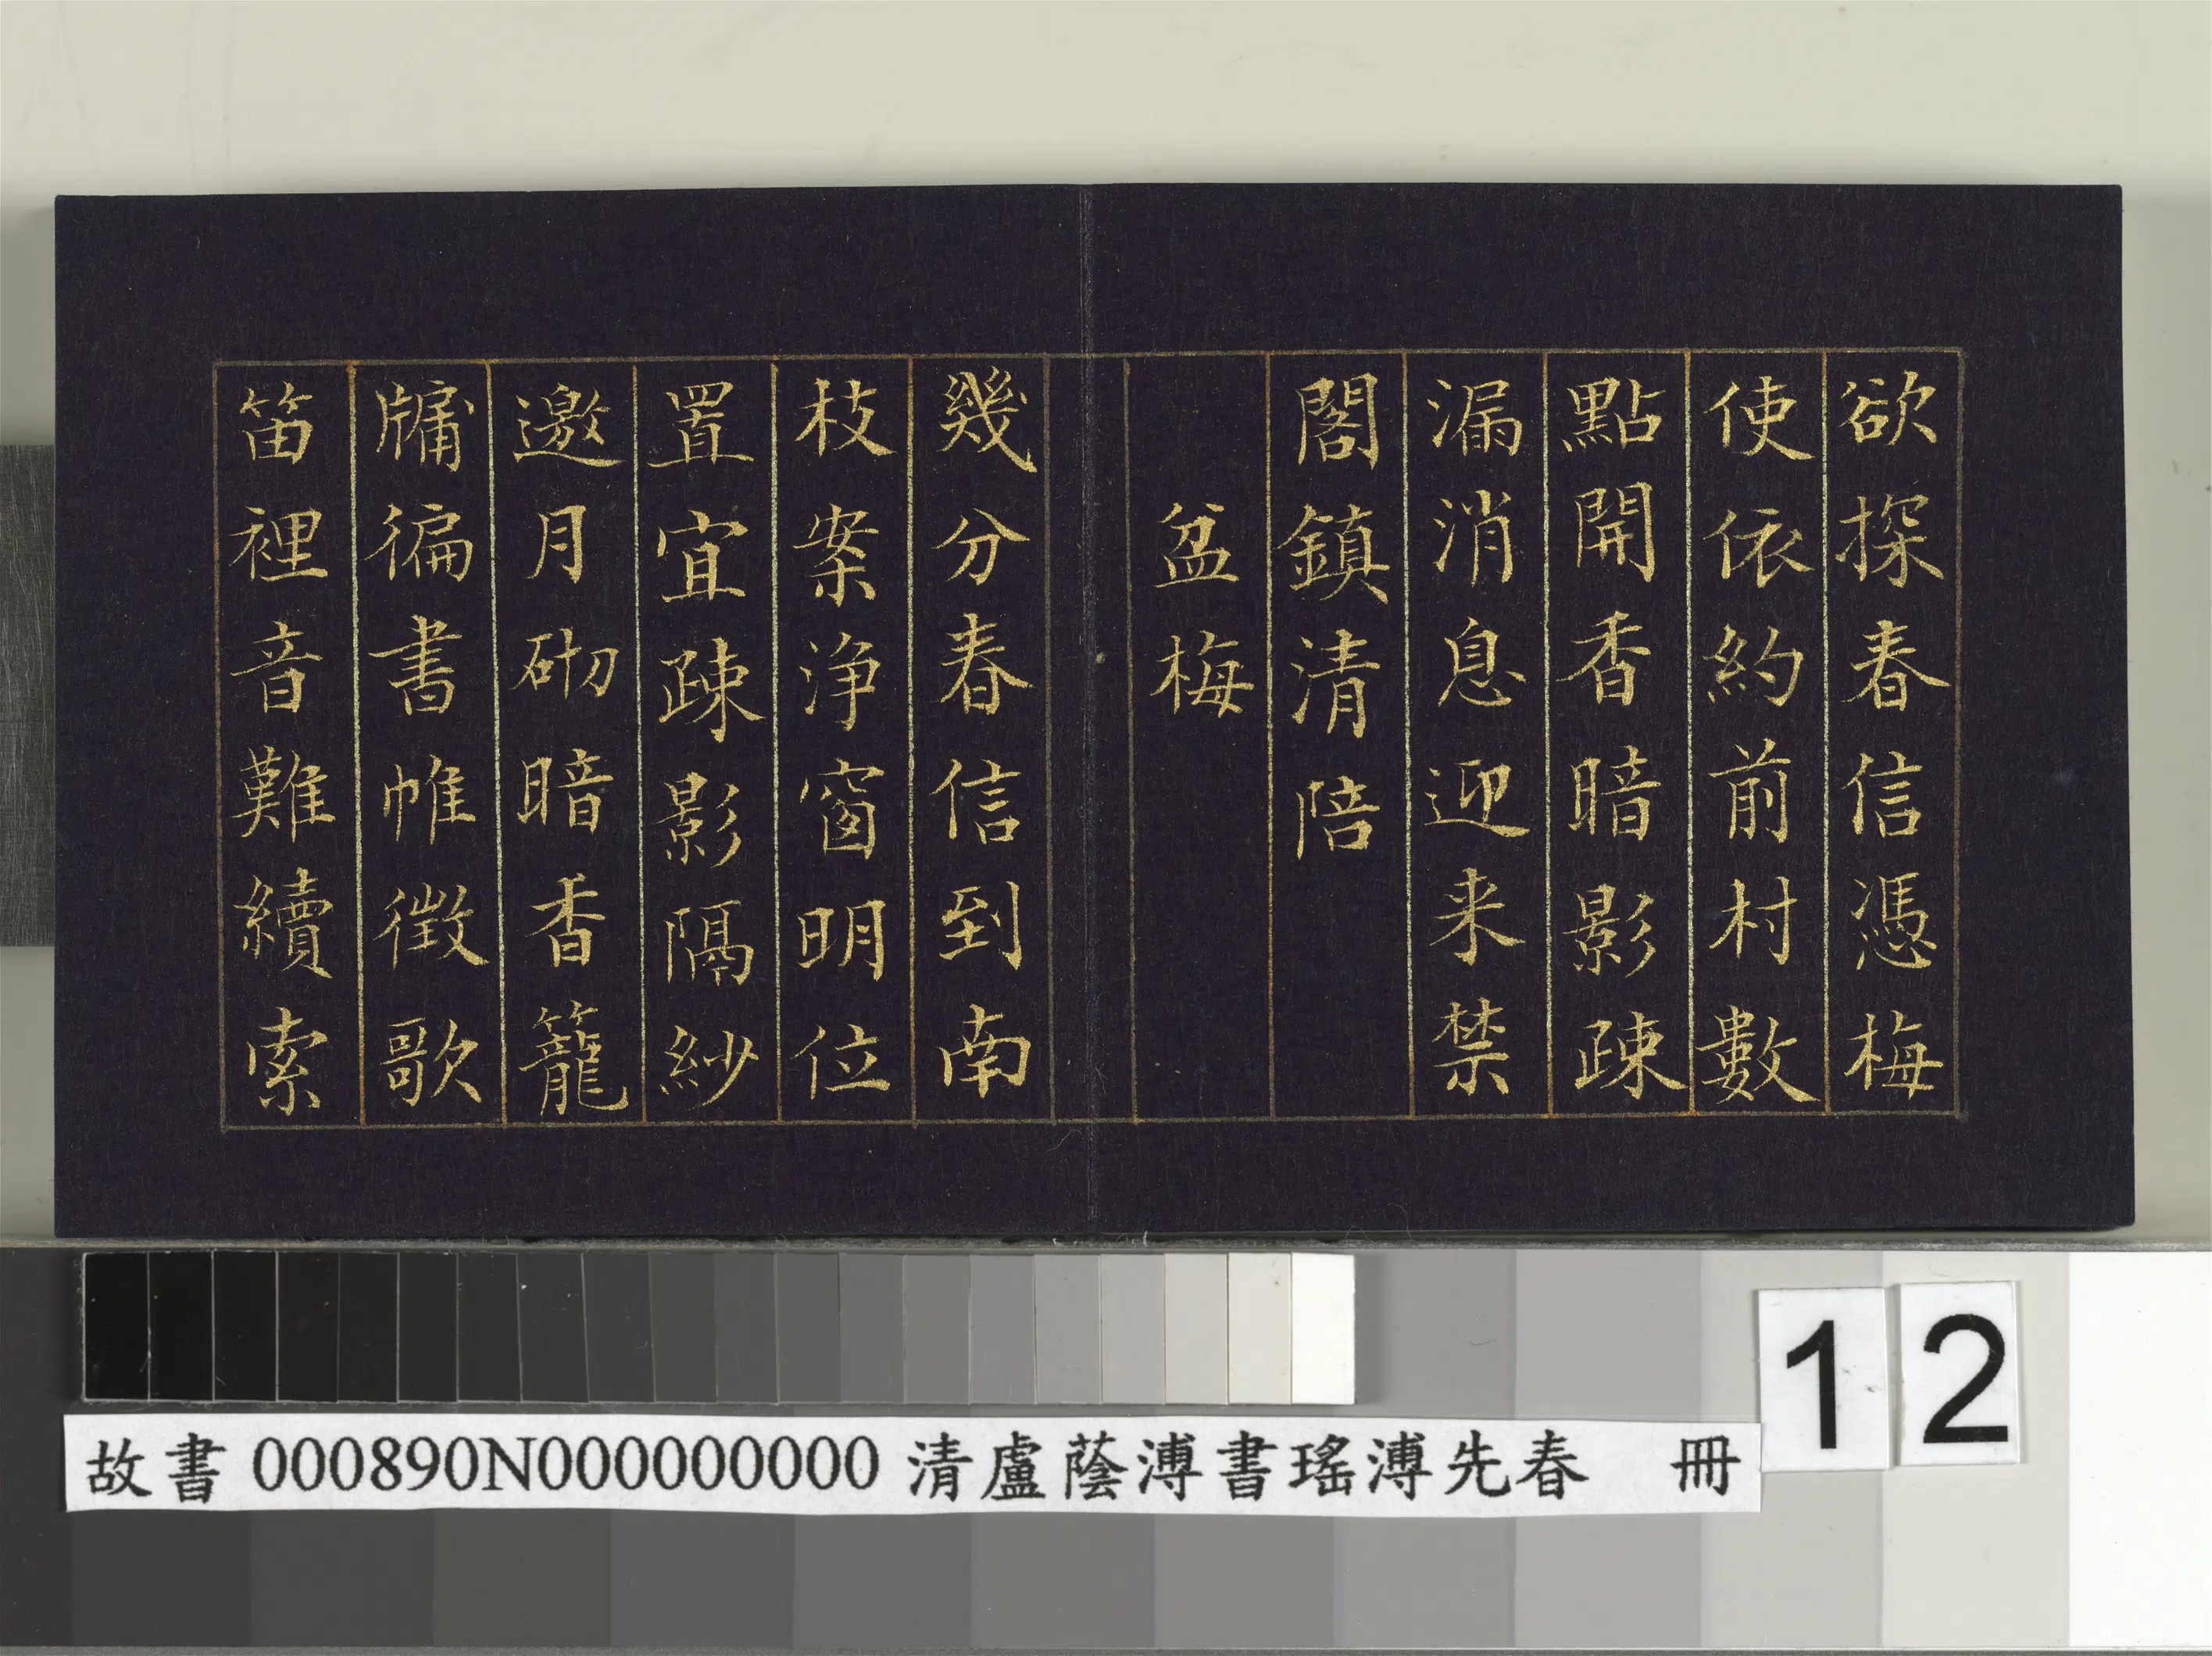 欲探春信憑梅
使依約前村數
點開香暗影疎
漏消息迎来禁
閣鎮清陪
盆梅
幾分春信到南
枝案淨窗明位
置宜疎影隔紗
邀月砌暗香籠
牖徧書帷徵歌
笛裡音難續索
12
故書 000890N000000000 清盧蔭溥書瑤溥先春 冊